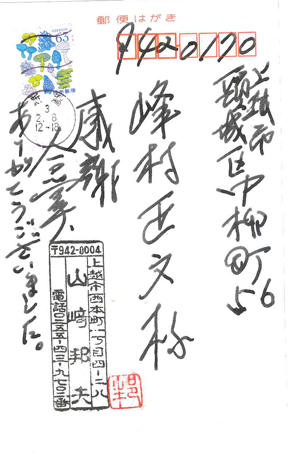 郵便はがき
9420170
上越市
頸城区中柳町56
峰村正文様
感謝
ありがとうございました。
63
3
2. 8
12-18
〒942-0004
上越市西本町一丁目四-二八
山崎邦夫
電話〇二五-五四三-九七〇三番